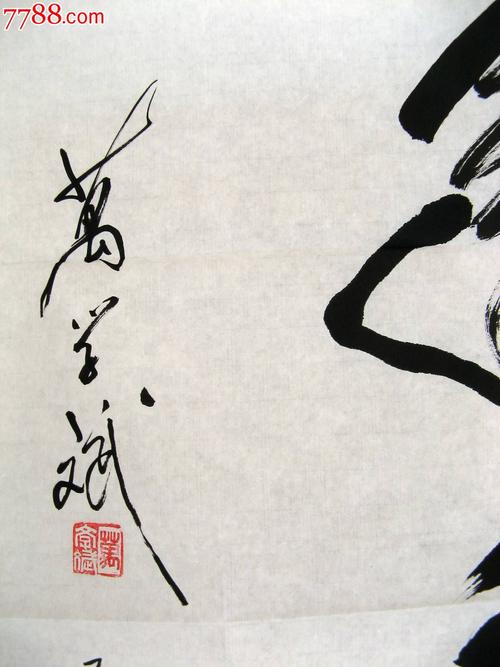 7788.com
萬学斌